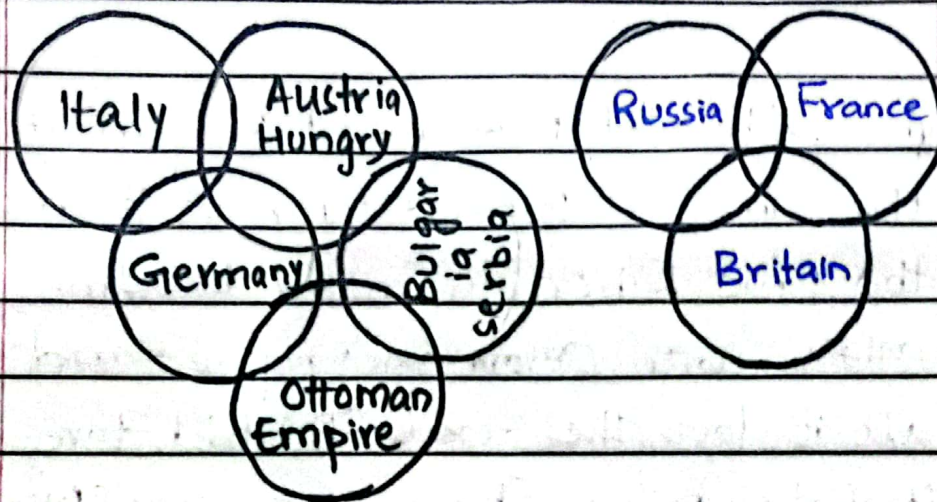 Italy
Austria
Hungry
Germany
Bulgar
ia
serbia
Ottoman
Empire
Russia
France
Britain